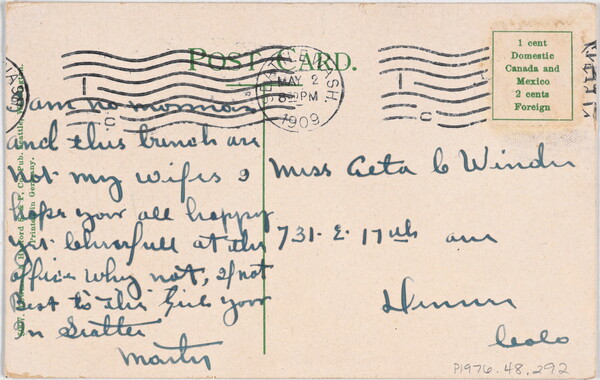 POST CARD.
1 cent
Domestic
Canada and
Mexico
2 cents
Foreign
SEATTLE, WASH.
MAY 2
8 PM
1909
I am no mormon
and this bunch are
not my wifes I
hope you all happy
yr. Cheerfull at the
office why not, if not
Best to the Girls your
in Seattle
Martin
Miss Aeta C Winder
731- E. 17th ave
Denver
Colo
P1976.48.292
Printed in Germany.